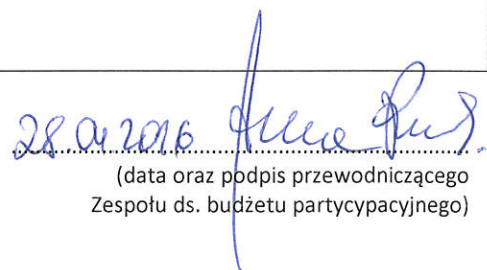 28.04.2016 Anna
(data oraz podpis przewodniczącego
Zespołu ds. budżetu partycypacyjnego)